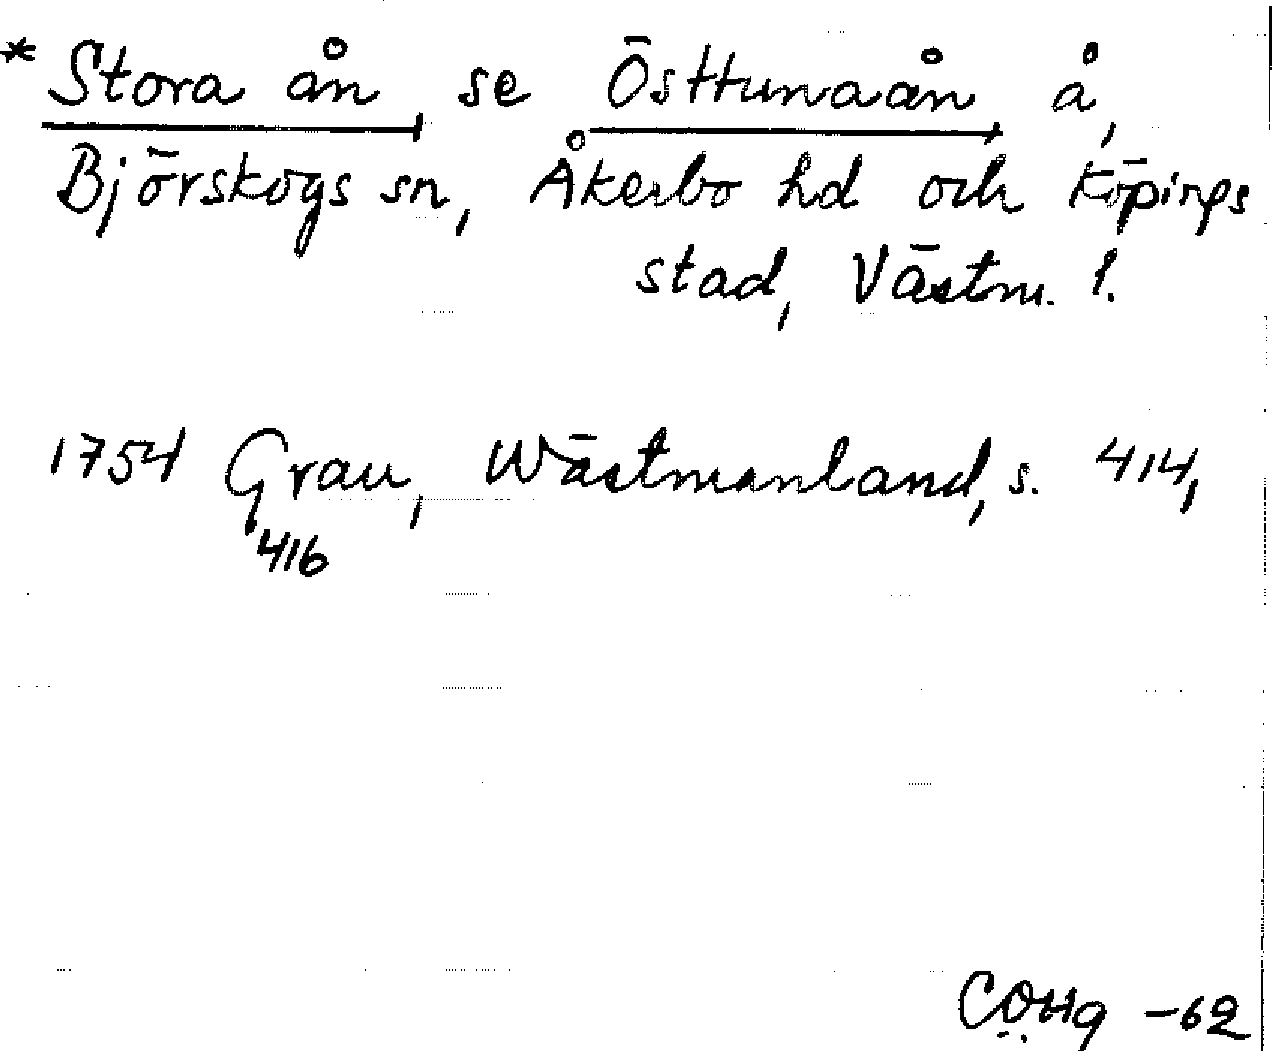 * Stora ån, se Östtunaån å,
Björskogs sn, Åkerbo hd och Köpings
stad, Västm. l.
1754 Grau, Wästmanland, s. 414,
416
-62